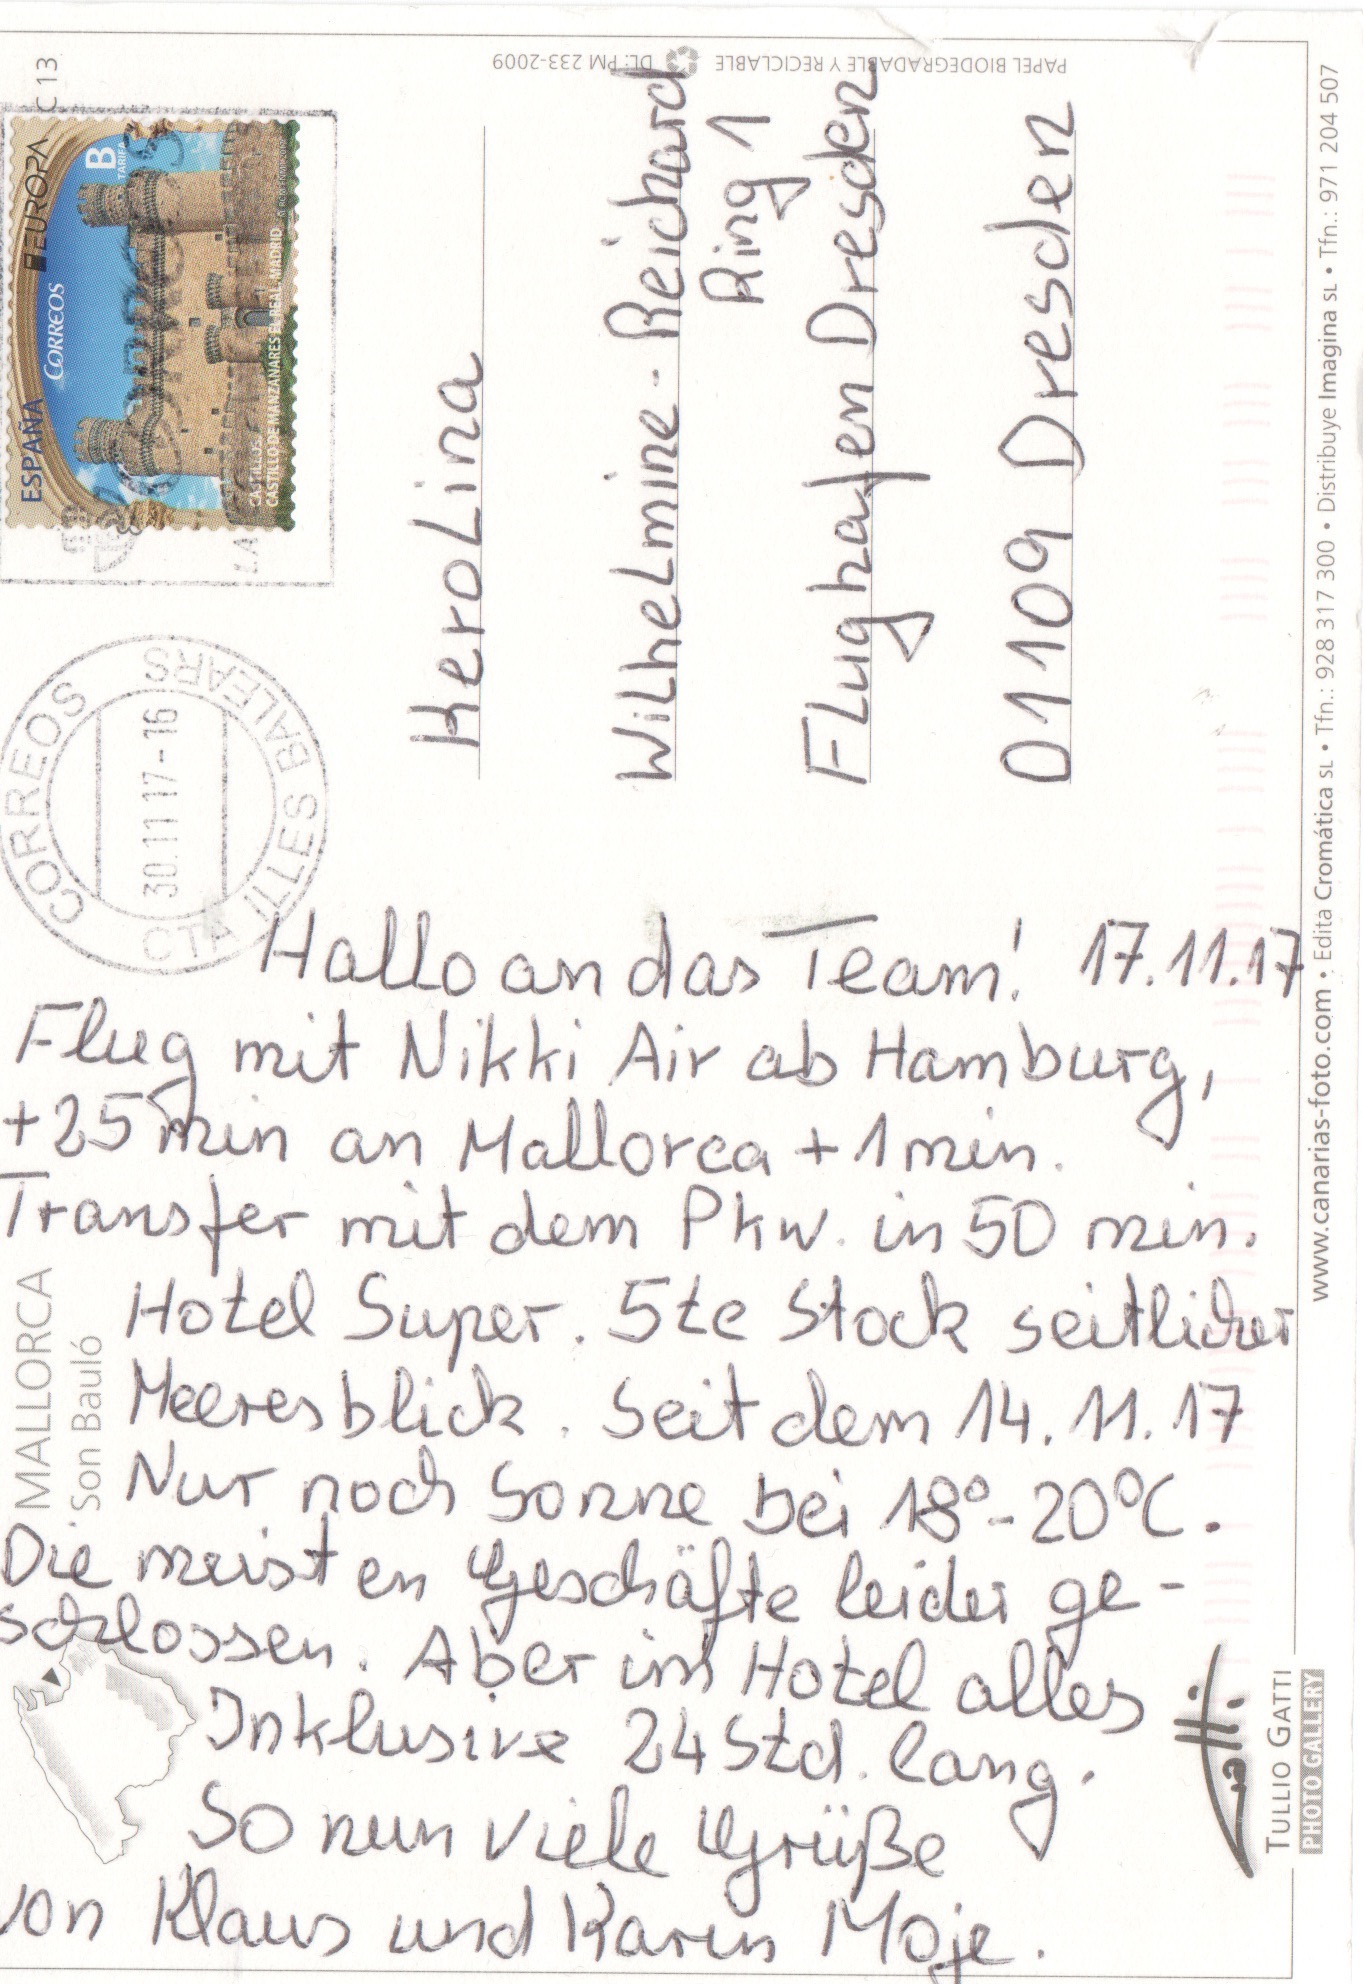 Hallo an das Team! 17.11.17
Flug mit Nikki Air ab Hamburg,
+25 min an Mallorca +1min.
Transfer mit dem Pkw. in 50 min.
Hotel Super. 5te Stock seitlicher
Meeresblick. Seit dem 14.11.17
Nur noch Sonne bei 18°-20°C.
Die meisten Geschäfte leider ge-
schlossen. Aber im Hotel alles
Inklusive 24 Std. lang.
So nun viele Grüße
von Klaus und Karin Moje.
KeroLina
WiLheLmine-Reichard
Ring 1
FLughafen Dresden
01109 Dresden
ESPAÑA
CORREOS
EUROPA
B
TARIFA
CASTILLOS
CASTILLO DE MANZANARES EL REAL. MADRID
C 13
CORREOS
30.11 17-16
CTA ILLES BALEARS
PAPEL BIODEGRADABLE Y RECICLABLE
DL: PM 233-2009
MALLORCA
Son Bauló
www.canarias-foto.com • Edita Cromática SL • Tfn.: 928 317 300 • Distribuye Imagina SL • Tfn.: 971 204 507
Gatti
TULLIO GATTI
PHOTO GALLERY